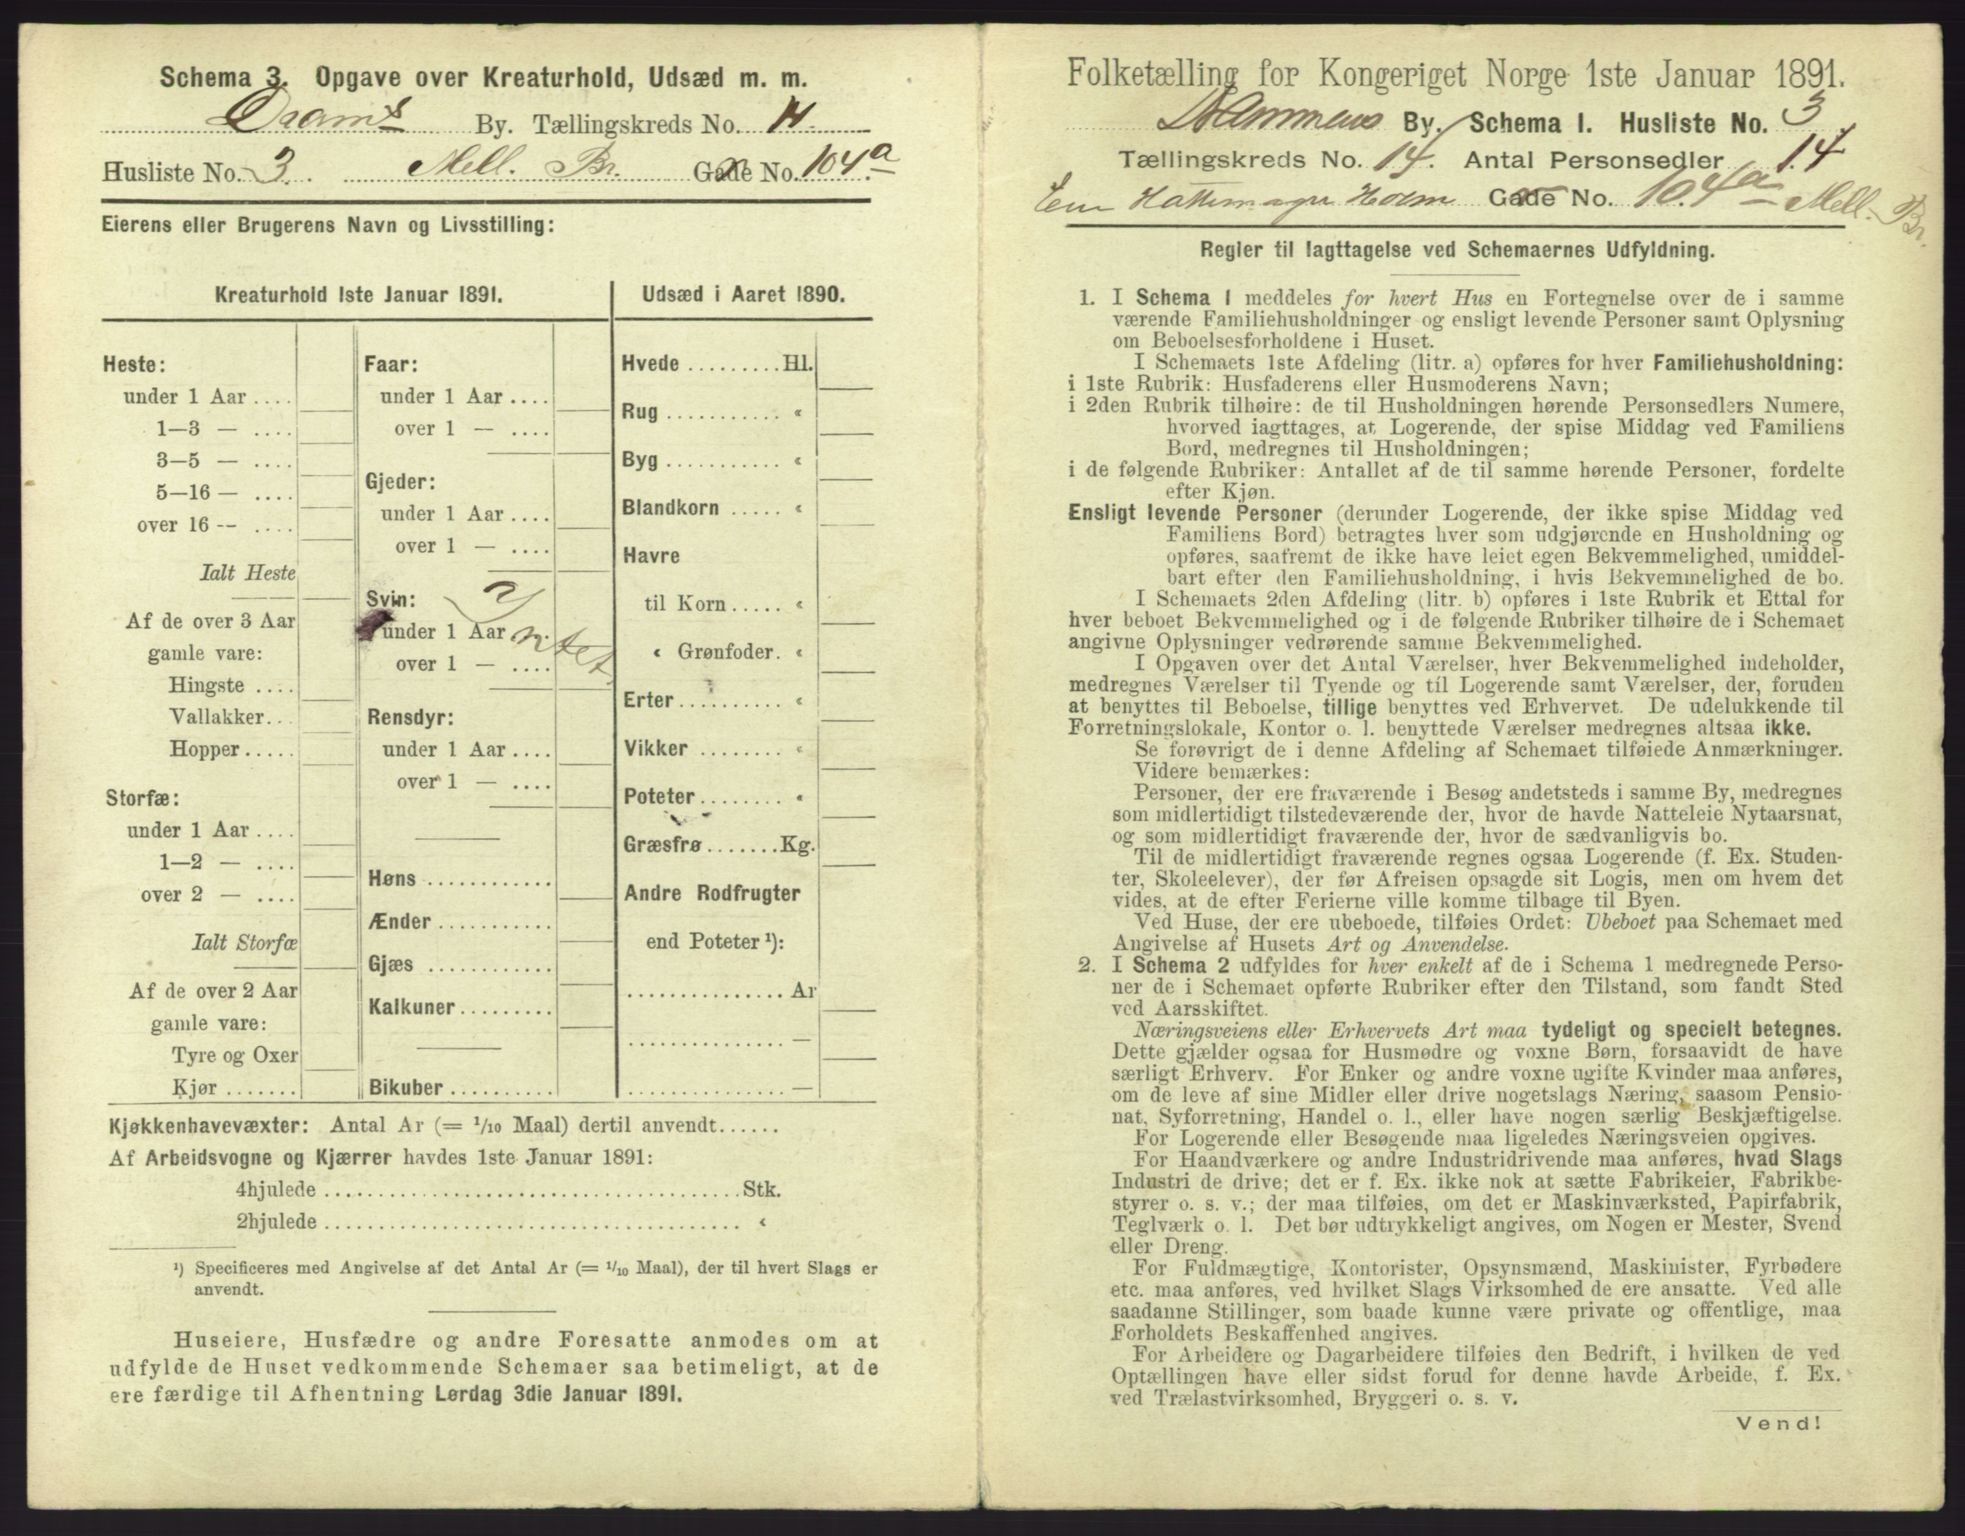 Schema 3. Opgave over Kreaturhold, Udsæd m. m.
Dram.s By. Tællingskreds No. 14.
Husliste No. 3. Mell. Br. Gade No. 104a
Eierens eller Brugerens Navn og Livsstilling:
Kreaturhold 1ste Januar 1891.
Heste:
under 1 Aar ....
1—3 — ....
3—5 — ....
5—16 — ....
over 16 -- ....
Ialt Heste
Af de over 3 Aar
gamle vare:
Hingste ....
Vallakker...
Hopper .....
Storfæ:
under 1 Aar ....
1—2 — ....
over 2 — ....
Ialt Storfæ
Af de over 2 Aar
gamle vare:
Tyre og Oxer
Kjør .......
Faar:
under 1 Aar ....
over 1 — ....
Gjeder:
under 1 Aar ....
over 1 — ....
Svin:
under 1 Aar
over 1 — ....
Intet
Rensdyr:
under 1 Aar ....
over 1 — ....
Høns ............
Ænder ...........
Gjæs ............
Kalkuner.........
Bikuber..........
Udsæd i Aaret 1890.
Hvede .........Hl.
Rug ........... «
Byg ........... «
Blandkorn ..... «
Havre
til Korn..... «
« Grønfoder. «
Erter.......... «
Vikker ........ «
Poteter........ «
Græsfrø.......Kg.
Andre Rodfrugter
end Poteter ¹):
............... Ar
............... —
............... —
Kjøkkenhavevæxter: Antal Ar (= 1/10 Maal) dertil anvendt......
Af Arbeidsvogne og Kjærrer havdes 1ste Januar 1891:
4hjulede ..............................Stk.
2hjulede .............................. «
¹) Specificeres med Angivelse af det Antal Ar (= 1/10 Maal), der til hvert Slags er
anvendt.
Huseiere, Husfædre og andre Foresatte anmodes om at
udfylde de Huset vedkommende Schemaer saa betimeligt, at de
ere færdige til Afhentning Lørdag 3die Januar 1891.
Folketælling for Kongeriget Norge 1ste Januar 1891.
Drammens By. Schema 1. Husliste No. 3
Tællingskreds No. 14. Antal Personsedler 14
Hattemager Holm Gade No. 104a Mell. Br.
Regler til Iagttagelse ved Schemaernes Udfyldning.
1. I Schema 1 meddeles for hvert Hus en Fortegnelse over de i samme
værende Familiehusholdninger og ensligt levende Personer samt Oplysning
om Beboelsesforholdene i Huset.
I Schemaets 1ste Afdeling (litr. a) opføres for hver Familiehusholdning:
i 1ste Rubrik: Husfaderens eller Husmoderens Navn;
i 2den Rubrik tilhøire: de til Husholdningen hørende Personsedlers Numere,
hvorved iagttages, at Logerende, der spise Middag ved Familiens
Bord, medregnes til Husholdningen;
i de følgende Rubriker: Antallet af de til samme hørende Personer, fordelte
efter Kjøn.
Ensligt levende Personer (derunder Logerende, der ikke spise Middag ved
Familiens Bord) betragtes hver som udgjørende en Husholdning og
opføres, saafremt de ikke have leiet egen Bekvemmelighed, umiddel-
bart efter den Familiehusholdning, i hvis Bekvemmelighed de bo.
I Schemaets 2den Afdeling (litr. b) opføres i 1ste Rubrik et Ettal for
hver beboet Bekvemmelighed og i de følgende Rubriker tilhøire de i Schemaet
angivne Oplysninger vedrørende samme Bekvemmelighed.
I Opgaven over det Antal Værelser, hver Bekvemmelighed indeholder,
medregnes Værelser til Tyende og til Logerende samt Værelser, der, foruden
at benyttes til Beboelse, tillige benyttes ved Erhvervet. De udelukkende til
Forretningslokale, Kontor o. l. benyttede Værelser medregnes altsaa ikke.
Se forøvrigt de i denne Afdeling af Schemaet tilføiede Anmærkninger.
Videre bemærkes:
Personer, der ere fraværende i Besøg andetsteds i samme By, medregnes
som midlertidigt tilstedeværende der, hvor de havde Natteleie Nytaarsnat,
og som midlertidigt fraværende der, hvor de sædvanligvis bo.
Til de midlertidigt fraværende regnes ogsaa Logerende (f. Ex. Studen-
ter, Skoleelever), der før Afreisen opsagde sit Logis, men om hvem det
vides, at de efter Ferierne ville komme tilbage til Byen.
Ved Huse, der ere ubeboede, tilføies Ordet: Ubeboet paa Schemaet med
Angivelse af Husets Art og Anvendelse.
2. I Schema 2 udfyldes for hver enkelt af de i Schema 1 medregnede Perso-
ner de i Schemaet opførte Rubriker efter den Tilstand, som fandt Sted
ved Aarsskiftet.
Næringsveiens eller Erhvervets Art maa tydeligt og specielt betegnes.
Dette gjælder ogsaa for Husmødre og voxne Børn, forsaavidt de have
særligt Erhverv. For Enker og andre voxne ugifte Kvinder maa anføres,
om de leve af sine Midler eller drive nogetslags Næring, saasom Pensio-
nat, Syforretning, Handel o. l., eller have nogen særlig Beskjæftigelse.
For Logerende eller Besøgende maa ligeledes Næringsveien opgives.
For Haandværkere og andre Industridrivende maa anføres, hvad Slags
Industri de drive; det er f. Ex. ikke nok at sætte Fabrikeier, Fabrikbe-
styrer o. s. v.; der maa tilføies, om det er Maskinværksted, Papirfabrik,
Teglværk o. l. Det bør udtrykkeligt angives, om Nogen er Mester, Svend
eller Dreng.
For Fuldmægtige, Kontorister, Opsynsmænd, Maskinister, Fyrbødere
etc. maa anføres, ved hvilket Slags Virksomhed de ere ansatte. Ved alle
saadanne Stillinger, som baade kunne være private og offentlige, maa
Forholdets Beskaffenhed angives.
For Arbeidere og Dagarbeidere tilføies den Bedrift, i hvilken de ved
Optællingen have eller sidst forud for denne havde Arbeide, f. Ex.
ved Trælastvirksomhed, Bryggeri o. s. v.
Vend!